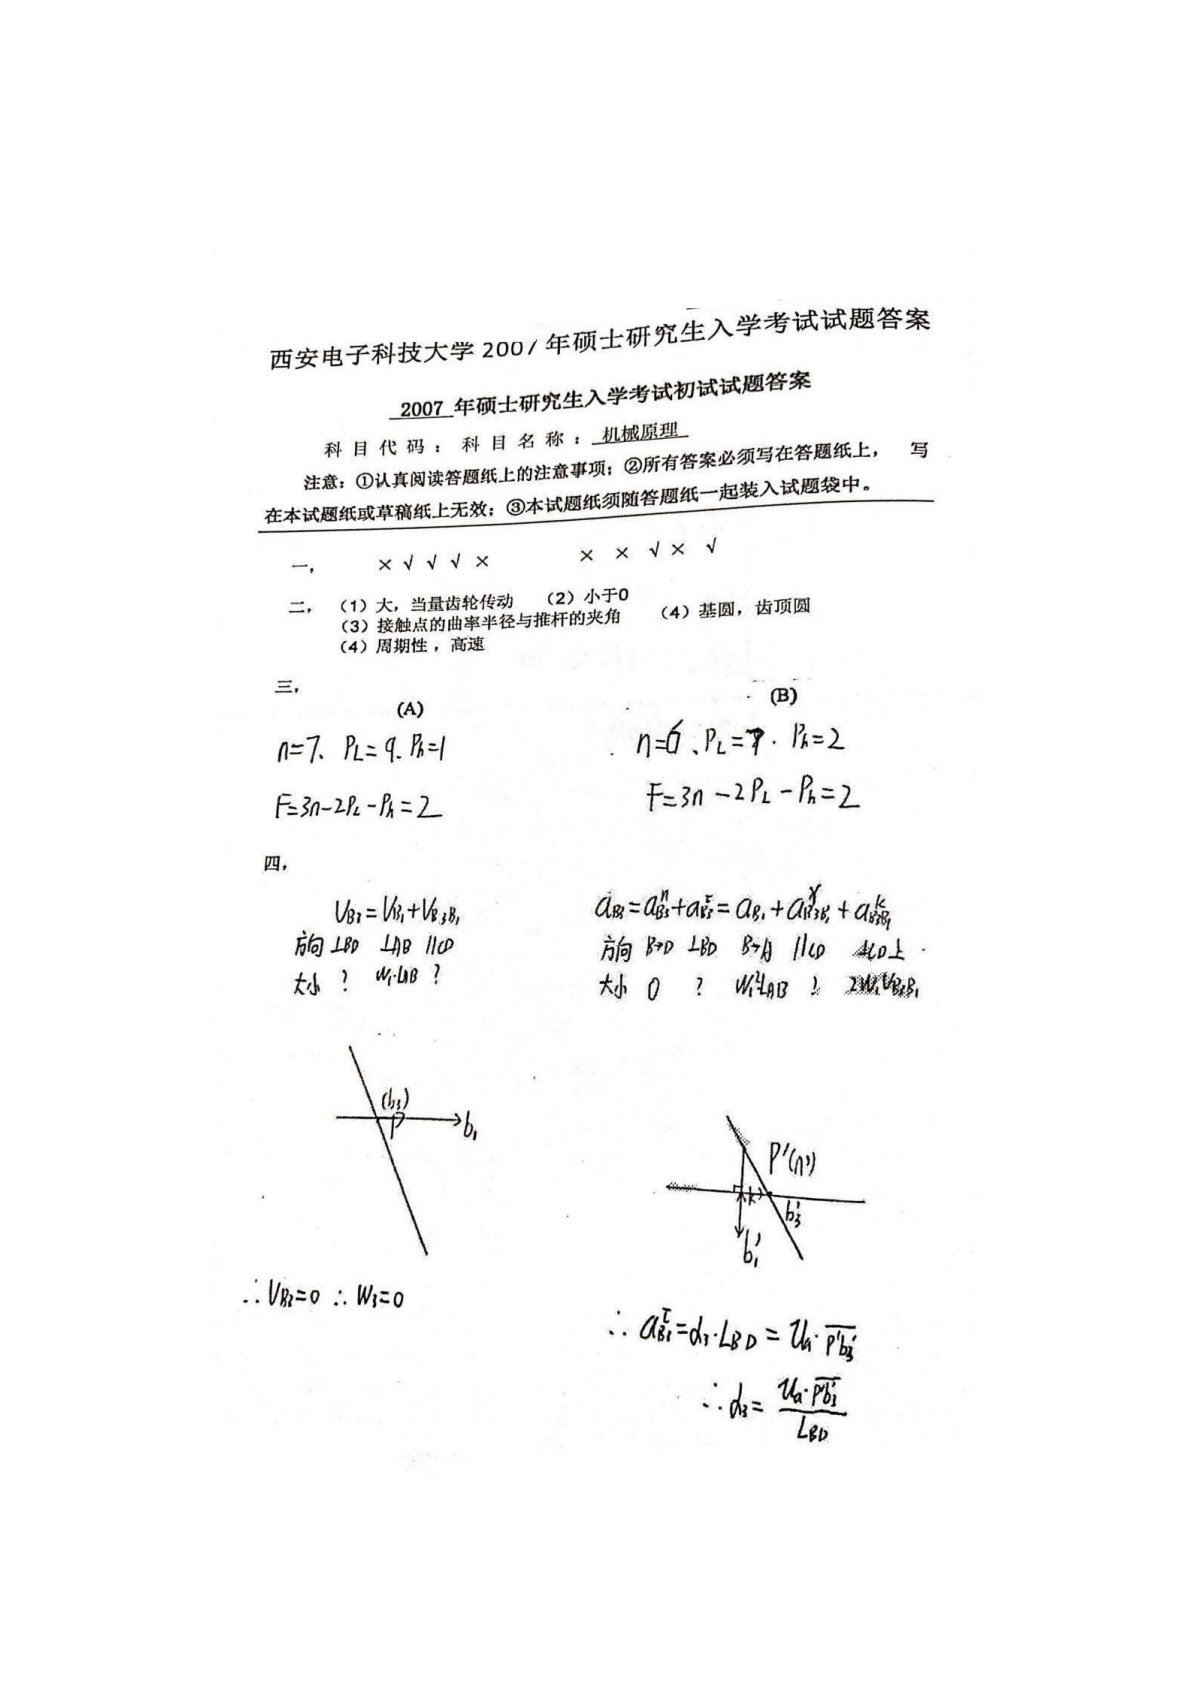 西安电子科技大学 2007 年硕士研究生入学考试试题答案
2007 年硕士研究生入学考试初试试题答案
科目代码： 科目名称：机械原理
注意：①认真阅读答题纸上的注意事项；②所有答案必须写在答题纸上， 写
在本试题纸或草稿纸上无效；③本试题纸须随答题纸一起装入试题袋中。
一， × √ √ √ × × × √ × √
二，（1）大，当量齿轮传动 （2）小于0
（3）接触点的曲率半径与推杆的夹角 （4）基圆，齿顶圆
（4）周期性，高速
三，
(A) (B)
n=7、PL=9. Ph=1 n=6、PL=7. Ph=2
F=3n-2PL-Ph=2 F=3n-2PL-Ph=2
四，
VB3=VB1+VB3B1 aB3=aB3n+aB3τ=aB1+aB3B1r+aB3B1k
方向 ⊥BD ⊥AB ∥CD 方向 B→D ⊥BD B→A ∥CD ⊥CD上
大小 ? W1·LAB ? 大小 0 ? W1²LAB ? 2W1VB3B1
(b3)
P b1
P'(n')
k b3'
b1'
∴VB3=0 ∴W3=0
∴ aB1τ=α3·LBD=Ua·P'b3'
∴α3= Ua·P'b3'
LBD